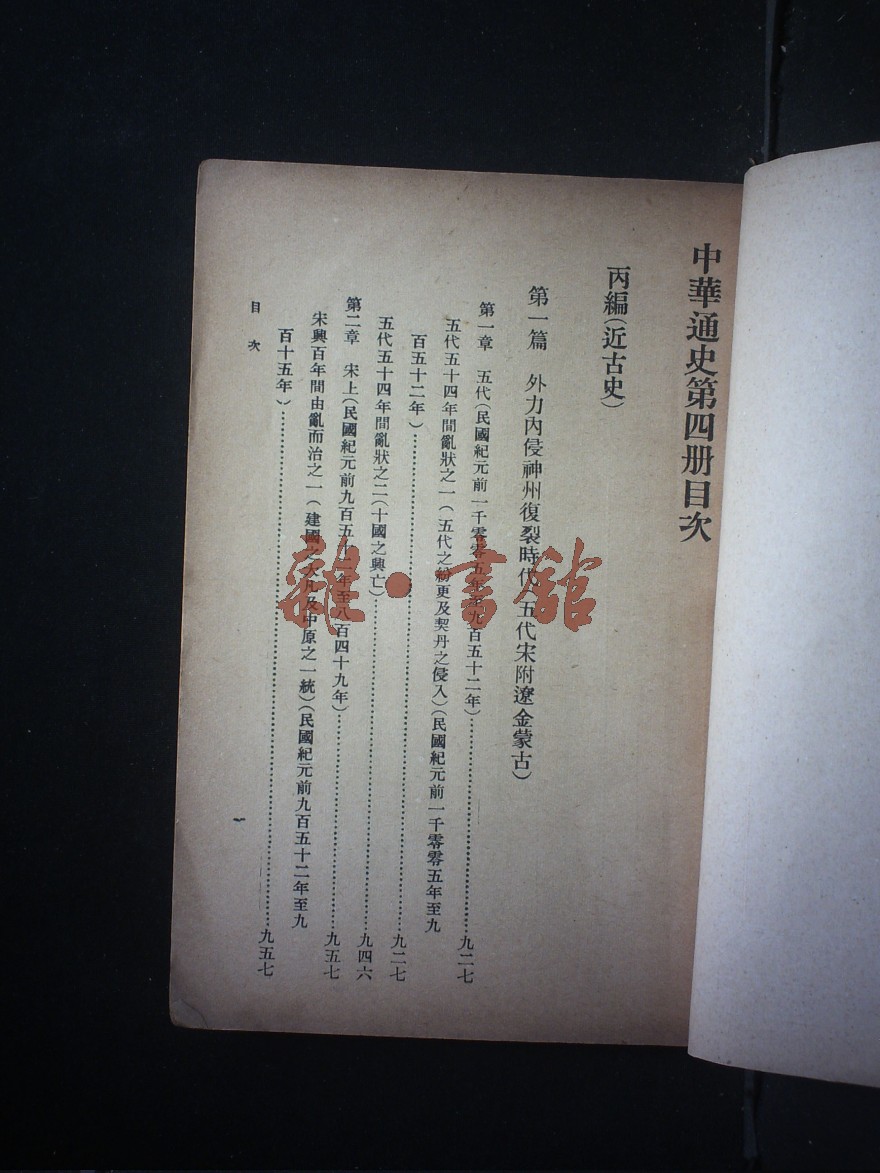 中華通史第四册目次
丙編(近古史)
第一篇 外力內侵神州復裂時代(五代宋附遼金蒙古)
第一章 五代(民國紀元前一千零零五年至九百五十二年)……九二七
五代五十四年間亂狀之一(五代之紛更及契丹之侵入)(民國紀元前一千零零五年至九
百五十二年)……九二七
五代五十四年間亂狀之二(十國之興亡)……九四六
第二章 宋上(民國紀元前九百五十二年至八百四十九年)……九五七
宋興百年間由亂而治之一(建國之大凡及中原之一統)(民國紀元前九百五十二年至九
百十五年)……九五七
目次
一
雜·書館